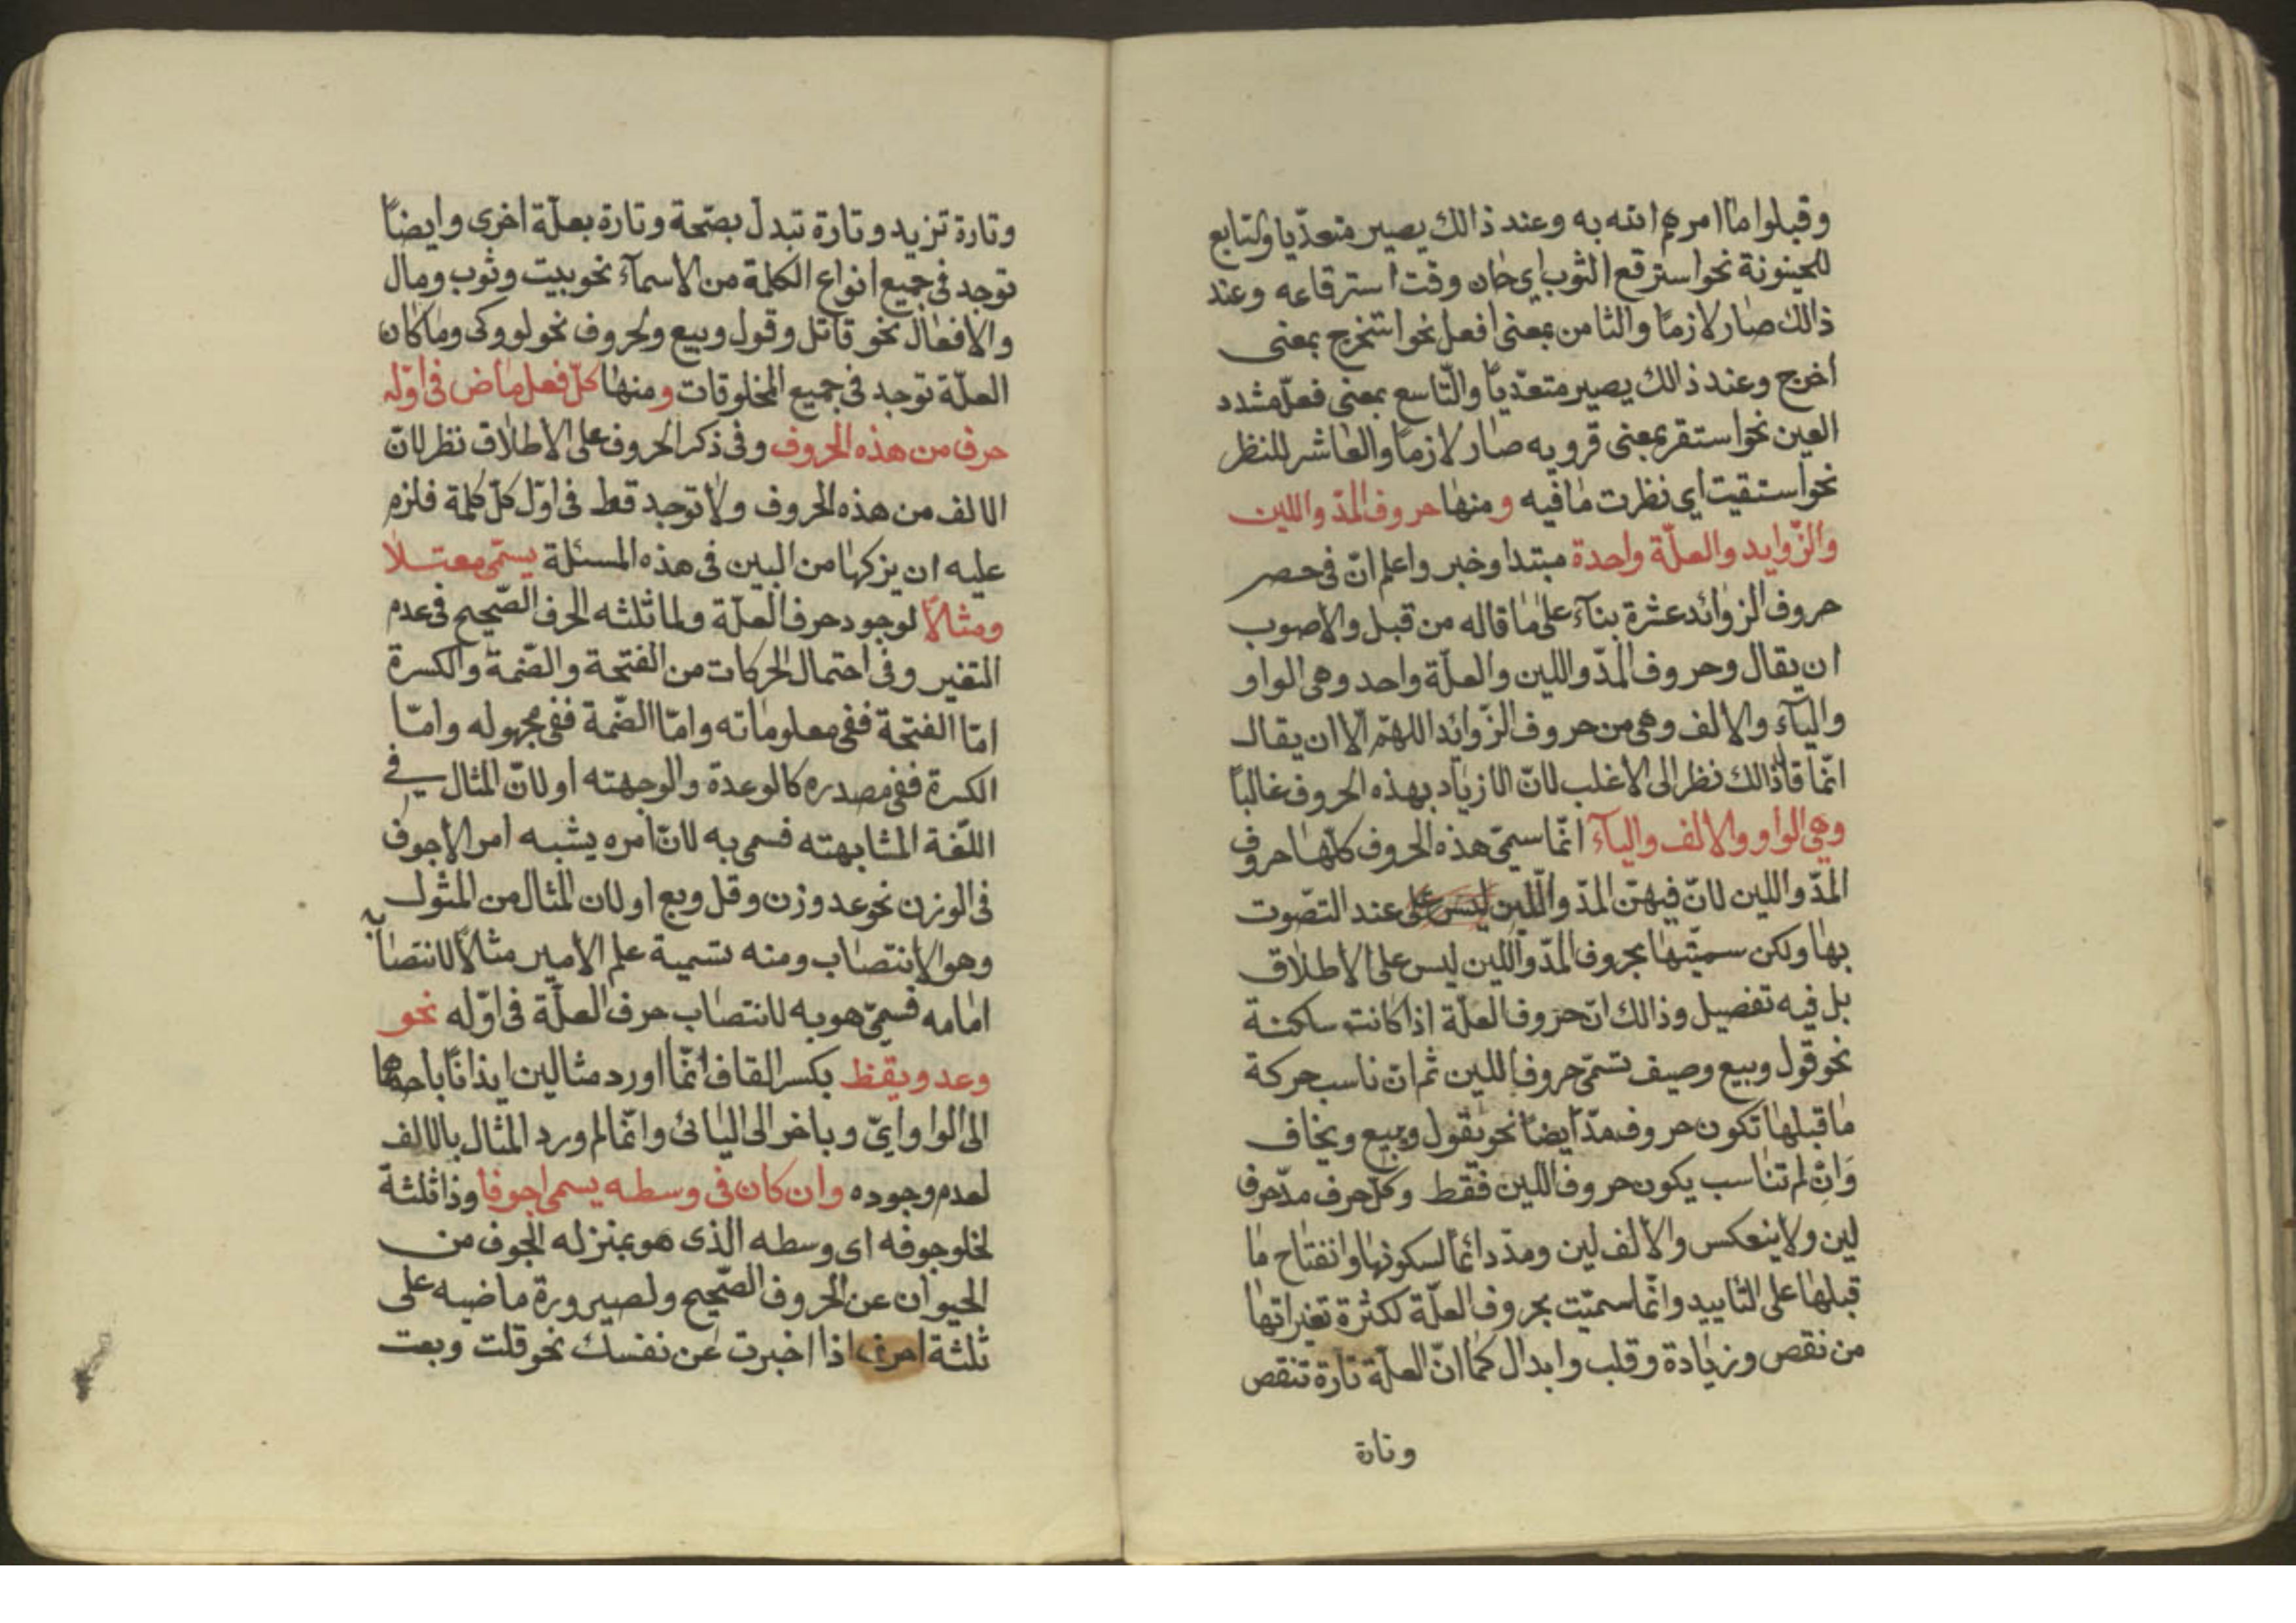 وقبلوا ما امرهم الله به وعند ذالك يصير متعدّيا والتابع
للحينونة نحو استرقع الثوب اي حان وقت استرقاعه وعند
ذالك صار لازمًا والثامن بمعنى افعل نحو استخرج بمعنى
اخرج وعند ذالك يصير متعدّيًا والتّاسع بمعنى فعّل مشدد
العين نحو استقر بمعنى قرو به صار لازمًا والعاشر للنظر
نحو استقيت اي نظرت ما فيه ومنها حروف المدّ واللين
والزّوايد والعلّة واحدة مبتدا وخبر واعلم انّ في حصر
حروف الزوائد عشرة بنآء على ما قاله من قبل والاصوب
ان يقال وحروف المدّ واللين والعلّة واحد وهي الواو
واليآء والالف وهي من حروف الزّوائد اللهمّ الّا ان يقال
انّما قال ذالك نظر الى الاغلب لانّ الازياد بهذه الحروف غالبًا
وهي الواو والالف واليآء انّما سميّ هذه الحروف كلّها حروف
المدّ واللين لانّ فيهنّ المدّ واللّين ليس على عند التصّوت
بها ولكن سميّتها بحروف المدّ واللين ليس على الاطلاق
بل فيه تفصيل وذالك انّ حروف العلّة اذا كانت ساكنة
نحو قول وبيع وصيف تسمّى حروف اللين ثم ان ناسب حركة
ما قبلها تكون حروف مدّ ايضًا نحو يقول ويبيع ويخاف
وَانْ لم تناسب يكون حروف اللين فقط وكلّ حرف مدّ حرف
لين ولا ينعكس والالف لين ومدّ دائمًا لسكونها وانفتاح ما
قبلها على التابيد وانّما سميّت بحروف العلّة لكثرة تغيراتها
من نقص وزيادة وقلب وابدال كما انّ العلّة تارة تنقص
وتارة
وتارة تزيد وتارة تبدل بصّحة وتارة بعلّة اخرى وايضًا
توجد في جميع انواع الكلمة من الاسمآء نحو بيت وثوب ومال
والافعال نحو قاتل وقول وبيع ولحروف نحو لو وكى وما كان
العلّة توجد في جميع المخلوقات ومنها كلّ فعل ماض في اوّله
حرف من هذه الحروف وفي ذكر الحروف على الاطلاق نظر لانّ
الالف من هذه الحروف ولا توجد قط في اوّل كلّ كلمة فلزم
عليه ان يزكها من البين في هذه المسئلة يسمّى معتلا
ومثالًا لوجود حرف العلّة ولماثلثه الحرف الصّحيح في عدم
التغير وفي احتمال الحركات من الفتحة والضّمة والكسرة
امّا الفتحة ففي معلوماته وامّا الضّمة ففي مجهوله وامّا
الكسرة ففي مصدره كالوعدة والوجهته او لانّ المثال في
اللّغة المشابهته فسمي به لانّ امره يشبه امر الاجوف
في الوزن نحو عد وزن وقل وبع او لان المثال من المثول
وهو الانتصاب ومنه تسمية علم الامير مثالًا لانتصابه
امامه فسميّ هو به لانتصاب حرف العلّة في اوّله نحو
وعد ويقظ بكسر القاف انّما اورد مثالين ايذانًا باحدهما
الى الواو ايّ وباخر الى اليائى وانّما لم ورد المثال بالالف
لعدم وجوده وان كان في وسطه يسمى اجوفا وذا ثلثة
لخلو جوفه اى وسطه الذى هو بمنزله الجوف من
الحيوان عن الحروف الصّحيح ولصيرورة ماضيه على
ثلثة احرف اذا اخبرت عن نفسك نحو قلت وبعت